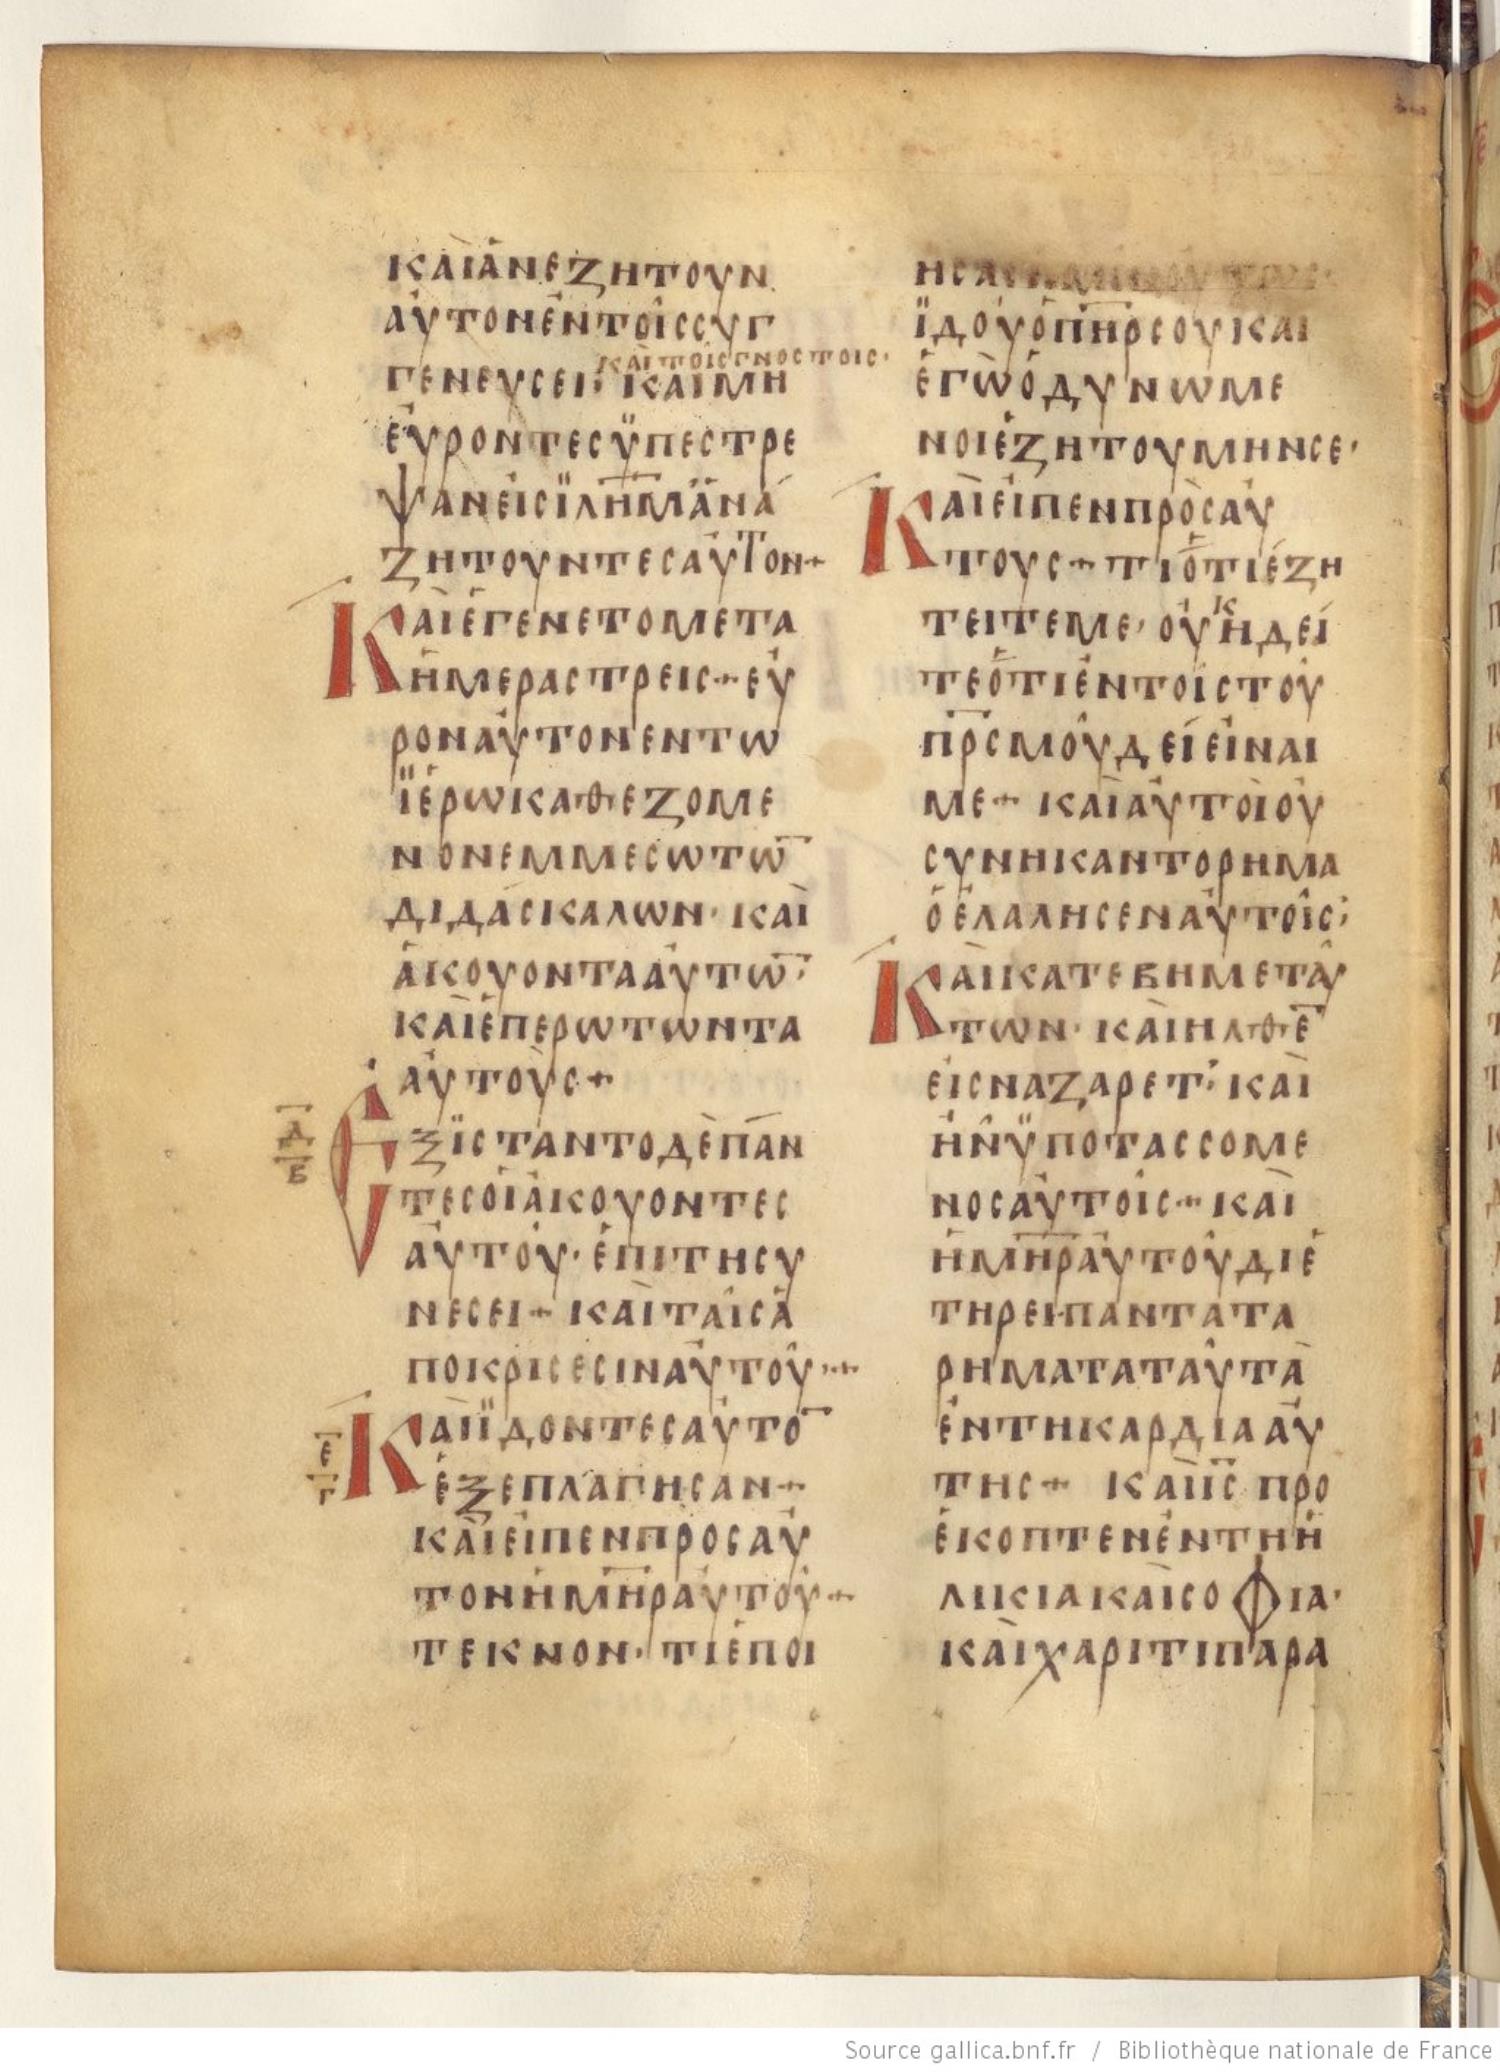 ΚΑΙΑΝΕΖΗΤΟΥΝ
ΑΥΤΟΝΕΝΤΟΙССΥΓ
ΚΑΙΤΟΙСΓΝΟСΤΟΙС·
ΓΕΝΕΥСΕΙ· ΚΑΙΜΗ
ΕΥΡΟΝΤΕСΫΠΕСΤΡΕ
ΨΑΝΕΙСΪΛΗΜΑΝΑ
ΖΗΤΟΥΝΤΕСΑΥΤΟΝ+
ΚΑΙΕΓΕΝΕΤΟΜΕΤΑ
ΗΜΕΡΑСΤΡΕΙС+ΕΥ
ΡΟΝΑΥΤΟΝΕΝΤΩ
ΪΕΡΩΚΑΘΕΖΟΜΕ
ΝΟΝΕΜΜΕСΩΤΩ̅
ΔΙΔΑСΚΑΛΩΝ· ΚΑΙ
ΑΚΟΥΟΝΤΑΑΥΤΩ̅·
ΚΑΙΕΠΕΡΩΤΩΝΤΑ
ΑΥΤΟΥС+
Δ̅
Β̅
ΕΞΪСΤΑΝΤΟΔΕΠΑΝ
ΤΕСΟΙΑΚΟΥΟΝΤΕС
ΑΥΤΟΥ· ΕΠΙΤΗСΥ
ΝΕСΕΙ+ ΚΑΙΤΑΙСΑ
ΠΟΚΡΙСΕСΙΝΑΥΤΟΥ·+
Ε̅
Γ̅
ΚΑΙΪΔΟΝΤΕСΑΥΤΟ̅
ΕΞΕΠΛΑΓΗСΑΝ+
ΚΑΙΕΙΠΕΝΠΡΟСΑΥ
ΤΟΝΗΜ̅Η̅Ρ̅ΑΥΤΟΥ+
ΤΕΚΝΟΝ· ΤΙΕΠΟΙ
ΗСΑС
ΪΔΟΥΟΠ̅Η̅Ρ̅СΟΥΚΑΙ
ΕΓΩΟΔΥΝΩΜΕ
ΝΟΙΕΖΗΤΟΥΜΗΝСΕ·
ΚΑΙΕΙΠΕΝΠΡΟСΑΥ
ΤΟΥС+ΤΙΟΤΙΕΖΗ
ΤΕΙΤΕΜΕ· ΟΥΚΗΔΕΙ
ΤΕΟΤΙΕΝΤΟΙСΤΟΥ
Π̅Ρ̅СΜΟΥΔΕΙΕΙΝΑΙ
ΜΕ+ ΚΑΙΑΥΤΟΙΟΥ
СΥΝΗΚΑΝΤΟΡΗΜΑ
ΟΕΛΑΛΗСΕΝΑΥΤΟΙС·
ΚΑΙΚΑΤΕΒΗΜΕΤΑΥ
ΤΩΝ· ΚΑΙΗΛΘΕ̅
ΕΙСΝΑΖΑΡΕΤ· ΚΑΙ
ΗΝΫΠΟΤΑССΟΜΕ
ΝΟСΑΥΤΟΙС+ ΚΑΙ
ΗΜ̅Η̅Ρ̅ΑΥΤΟΥΔΙΕ
ΤΗΡΕΙ·ΠΑΝΤΑΤΑ
ΡΗΜΑΤΑΤΑΥΤΑ
ΕΝΤΗΚΑΡΔΙΑΑΥ
ΤΗС+ ΚΑΙΙ̅С̅ ΠΡΟ
ΕΚΟΠΤΕΝΕΝΤΗΗ
ΛΙΚΙΑΚΑΙСΟΦΙΑ·
ΚΑΙΧΑΡΙΤΙΠΑΡΑ
Source gallica.bnf.fr / Bibliothèque nationale de France